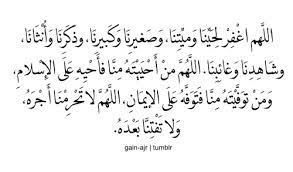 اللَّهُم اغْفِرْ لِحَيِّنَا وَمَيِّتِنَا، وَصَغِيرِنَا وَكَبِيرِنَا، وَذَكَرِنَا وَأُنْثَانَا،
وَشَاهِدِنَا وَغَائِبِنَا. اللَّهُمَّ مَنْ أَحْيَيْتَهُ مِنَّا فَأَحْيِهِ عَلَى الإِسْلامِ،
وَمَنْ تَوَفَّيْتَهُ مِنَّا فَتَوَفَّهُ عَلَى الإِيمَانِ، اللَّهُمَّ لاَ تَحْرِمْنَا أَجْرَهُ،
وَلا تَفْتِنَّا بَعْدَهُ.
gain-ajr | tumblr